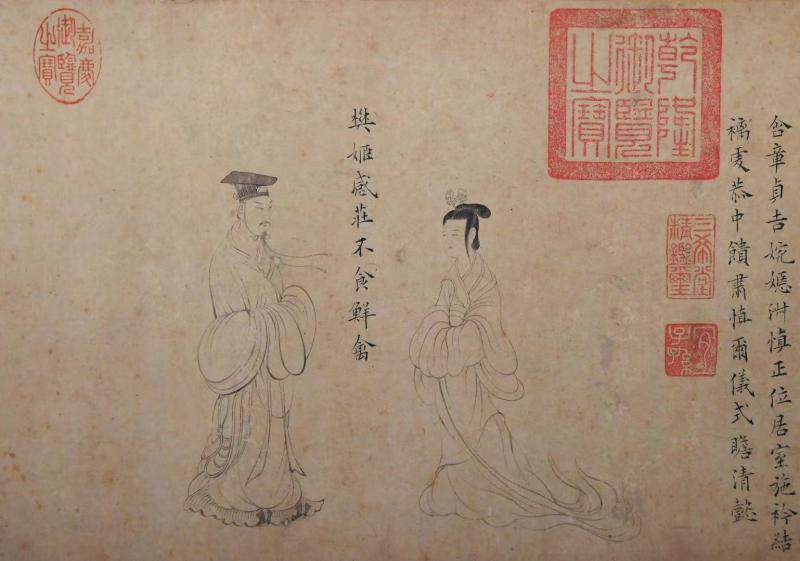 含章貞吉婉嫕淑慎正位居室施衿結
褵虔恭中饋肅慎爾儀式瞻清懿
乾隆御覽之寶
三希堂精鑑璽
宜子孫
樊姬感莊不食鮮禽
嘉慶御覽之寶